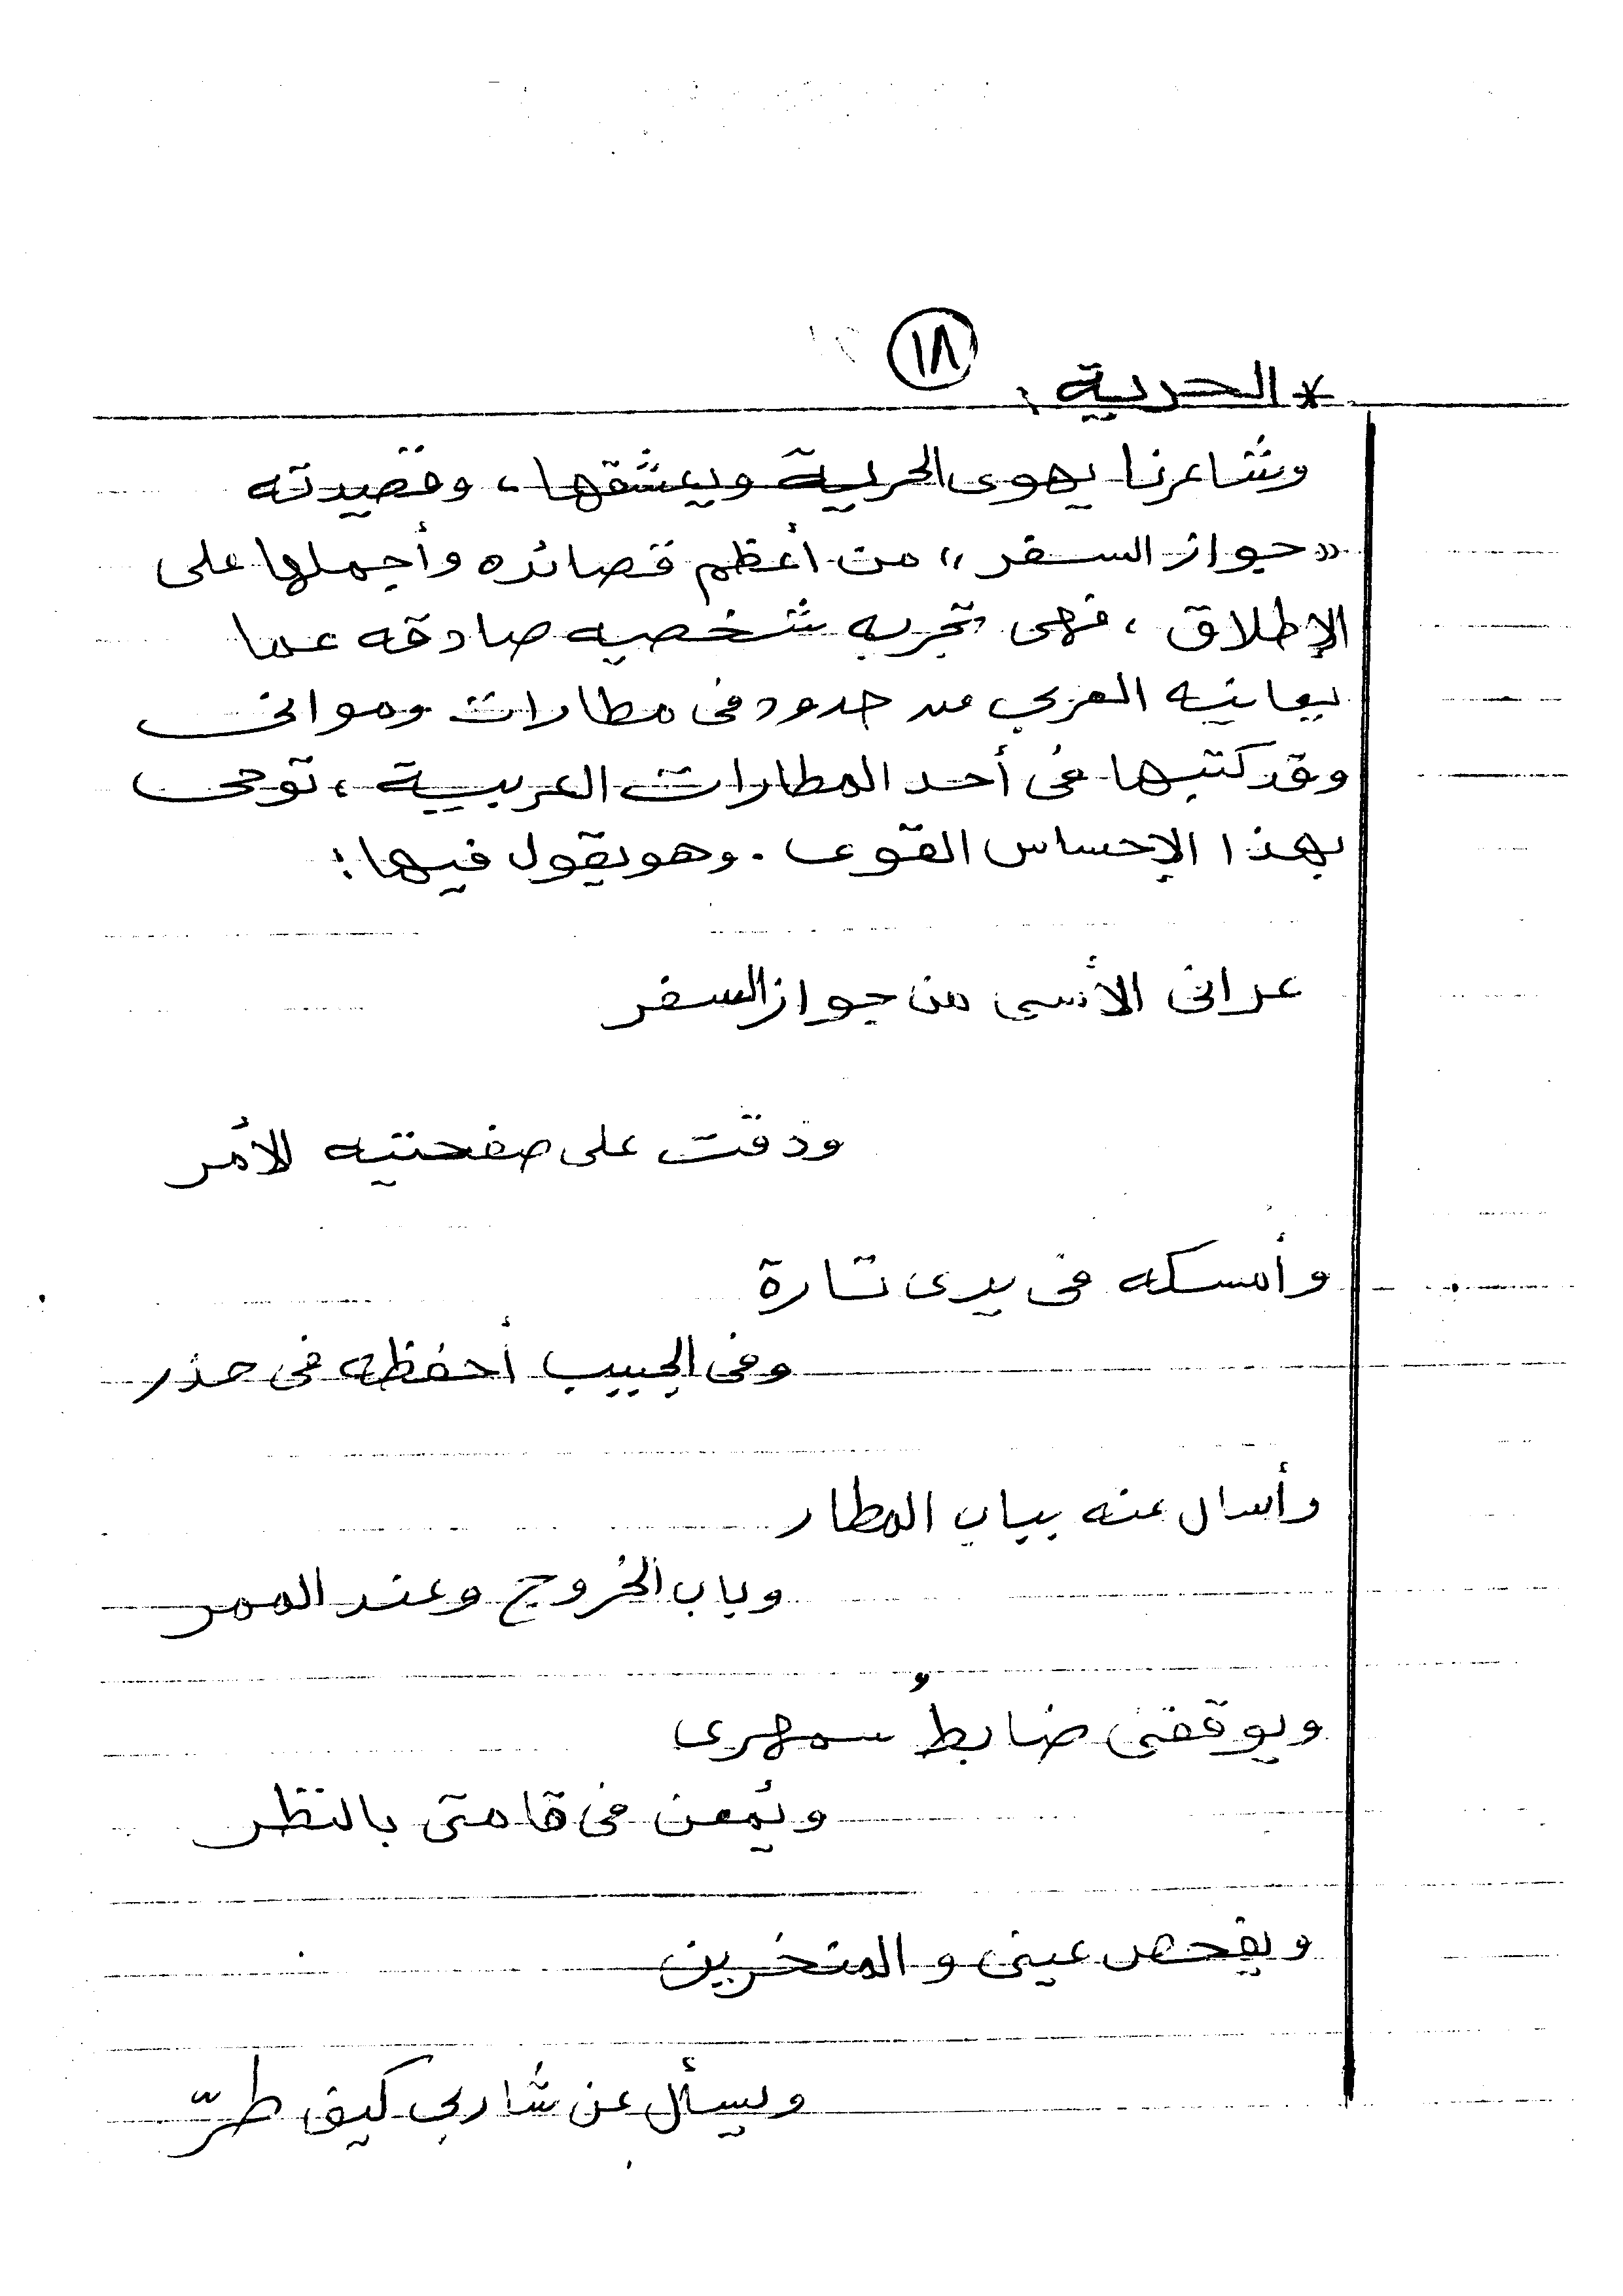 ١٨
* الحرية :
وشاعرنا يهوى الحرية ويعشقها ، وقصيدته
«جواز السفر» من أعظم قصائده وأجملها على
الإطلاق ، فهى تجربه شخصيه صادقه عما
يعانيه العربي من حدود فى مطارات وموانى
وقد كتبها فى أحد المطارات العربية ، توحى
بهذا الإحساس القوى . وهو يقول فيها :
عرانى الأسى من جواز السفر
وذقت على صفحتيه الأمر
وأمسكه فى يدى تارة
وفى الجيب أحفظه فى حذر
وأسال عنه بباب المطار
وباب الخروج وعند الممر
ويوقفنى ضابطٌ سمهرى
ويُمعن فى قامتى بالنظر
ويفحص عينى والمنخرين
ويسأل عن شاربى كيف طرّ